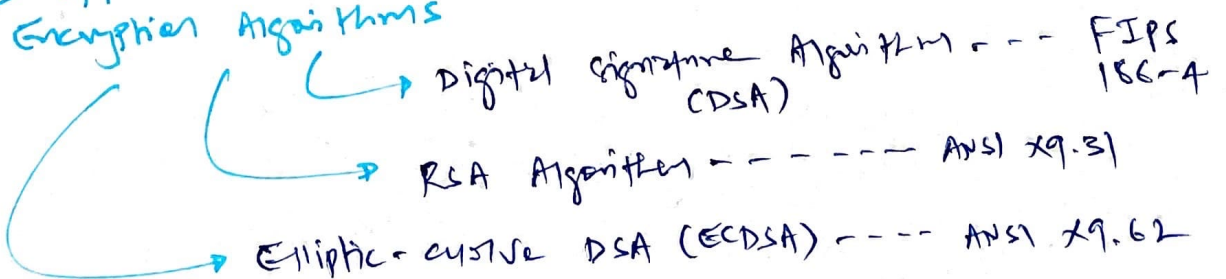 Encryption Algorithms
Digital Signature Algorithm --- FIPS
(DSA) 186-4
RSA Algorithm ------- ANSI X9.31
Elliptic-curve DSA (ECDSA) ---- ANSI X9.62